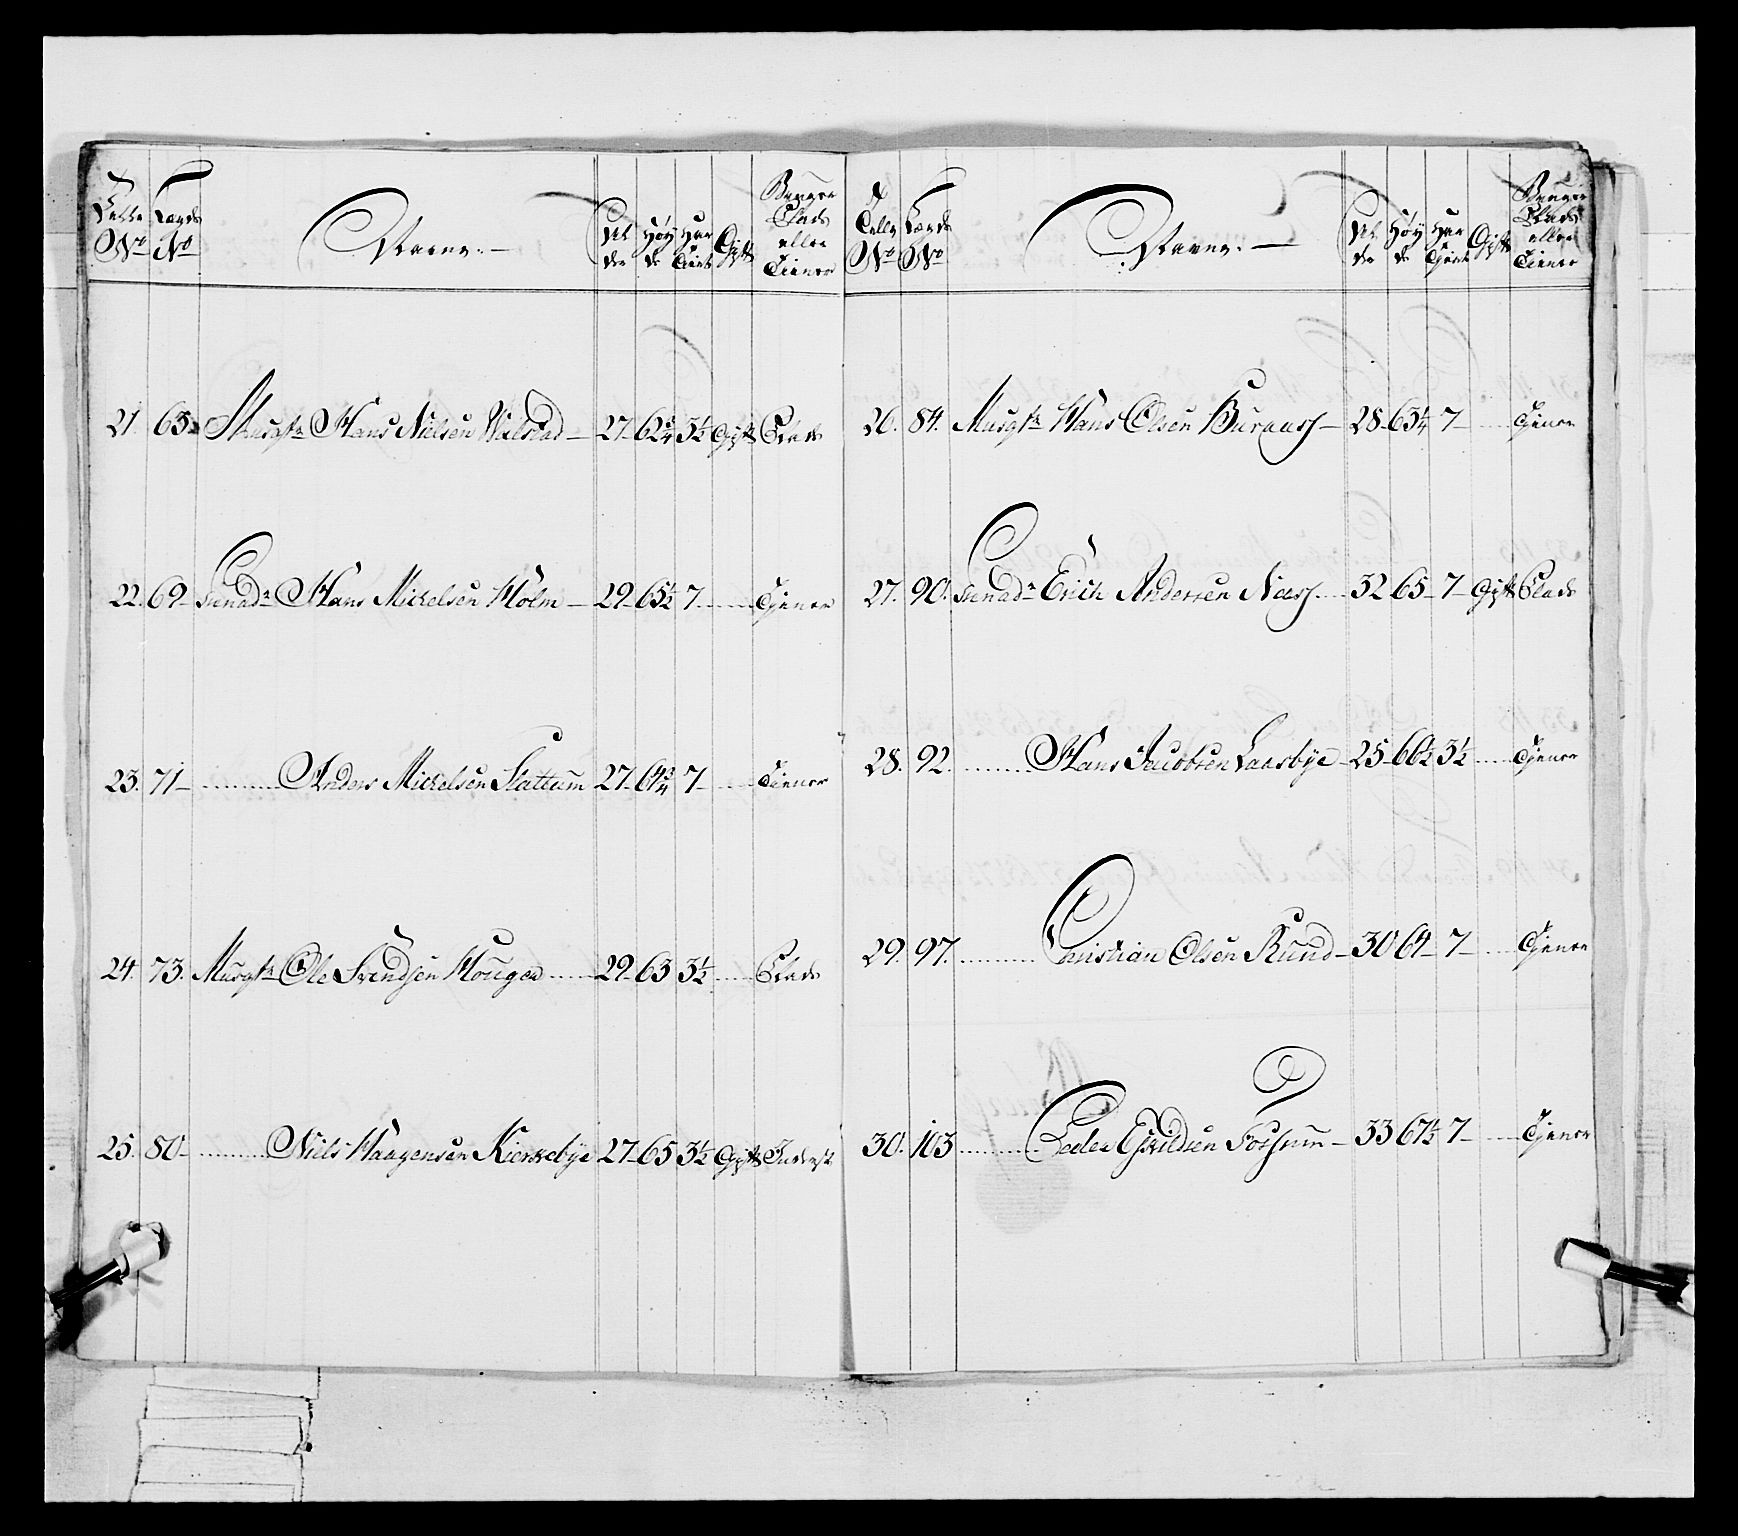 Telle No Lægds No Navne. Alder Høyde Har Tient Gift Bruger Plads eller Tiener
21. 63. Musqtr Hans Nielsen Walstad 27 62 3/4 3 1/2 Gift Plads
22. 69 Grenadr Hans Mickelsen Holm 29 65 1/2 7 Tjener
23. 71 Anders Mickelsen Slattum 27 64 3/4 7 Tiener
24. 73. Musqtr Ole Svendsen Houger 29 63 3 1/2 Plads
25. 80 Niels Haagensen Kierkebye 27 65 3 1/2 Gift Inderst
Telle No Lægds No Navne. Alder Høyde Har Tjent Gift Bruger Plads eller Tiener
26. 84. Musqtr Hans Olsen Buraas 28 63 1/4 7 Tjener
27. 90. Grenadr Erich Andersen Næss 32 65 7 Gift Plads
28. 92. Hans Jacobsen Laasbye 25 66 1/2 3 1/2 Tjener
29. 97. Christian Olsen Rund 30 64 7 Tjener
30. 103 Peder Eskildsen Fossum 33 67 1/2 7 Tjener